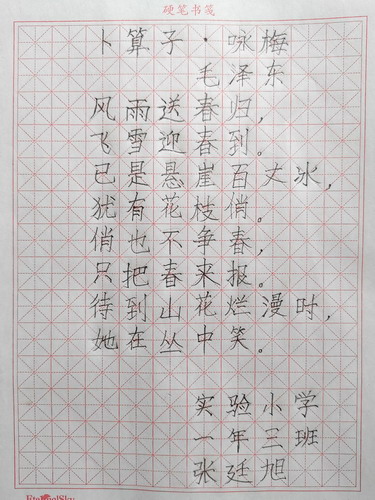 硬笔书笺
卜算子·咏梅
毛泽东
风雨送春归，
飞雪迎春到。
已是悬崖百丈冰，
犹有花枝俏。
俏也不争春，
只把春来报。
待到山花烂漫时，
她在丛中笑。
实验小学
一年三班
张廷旭